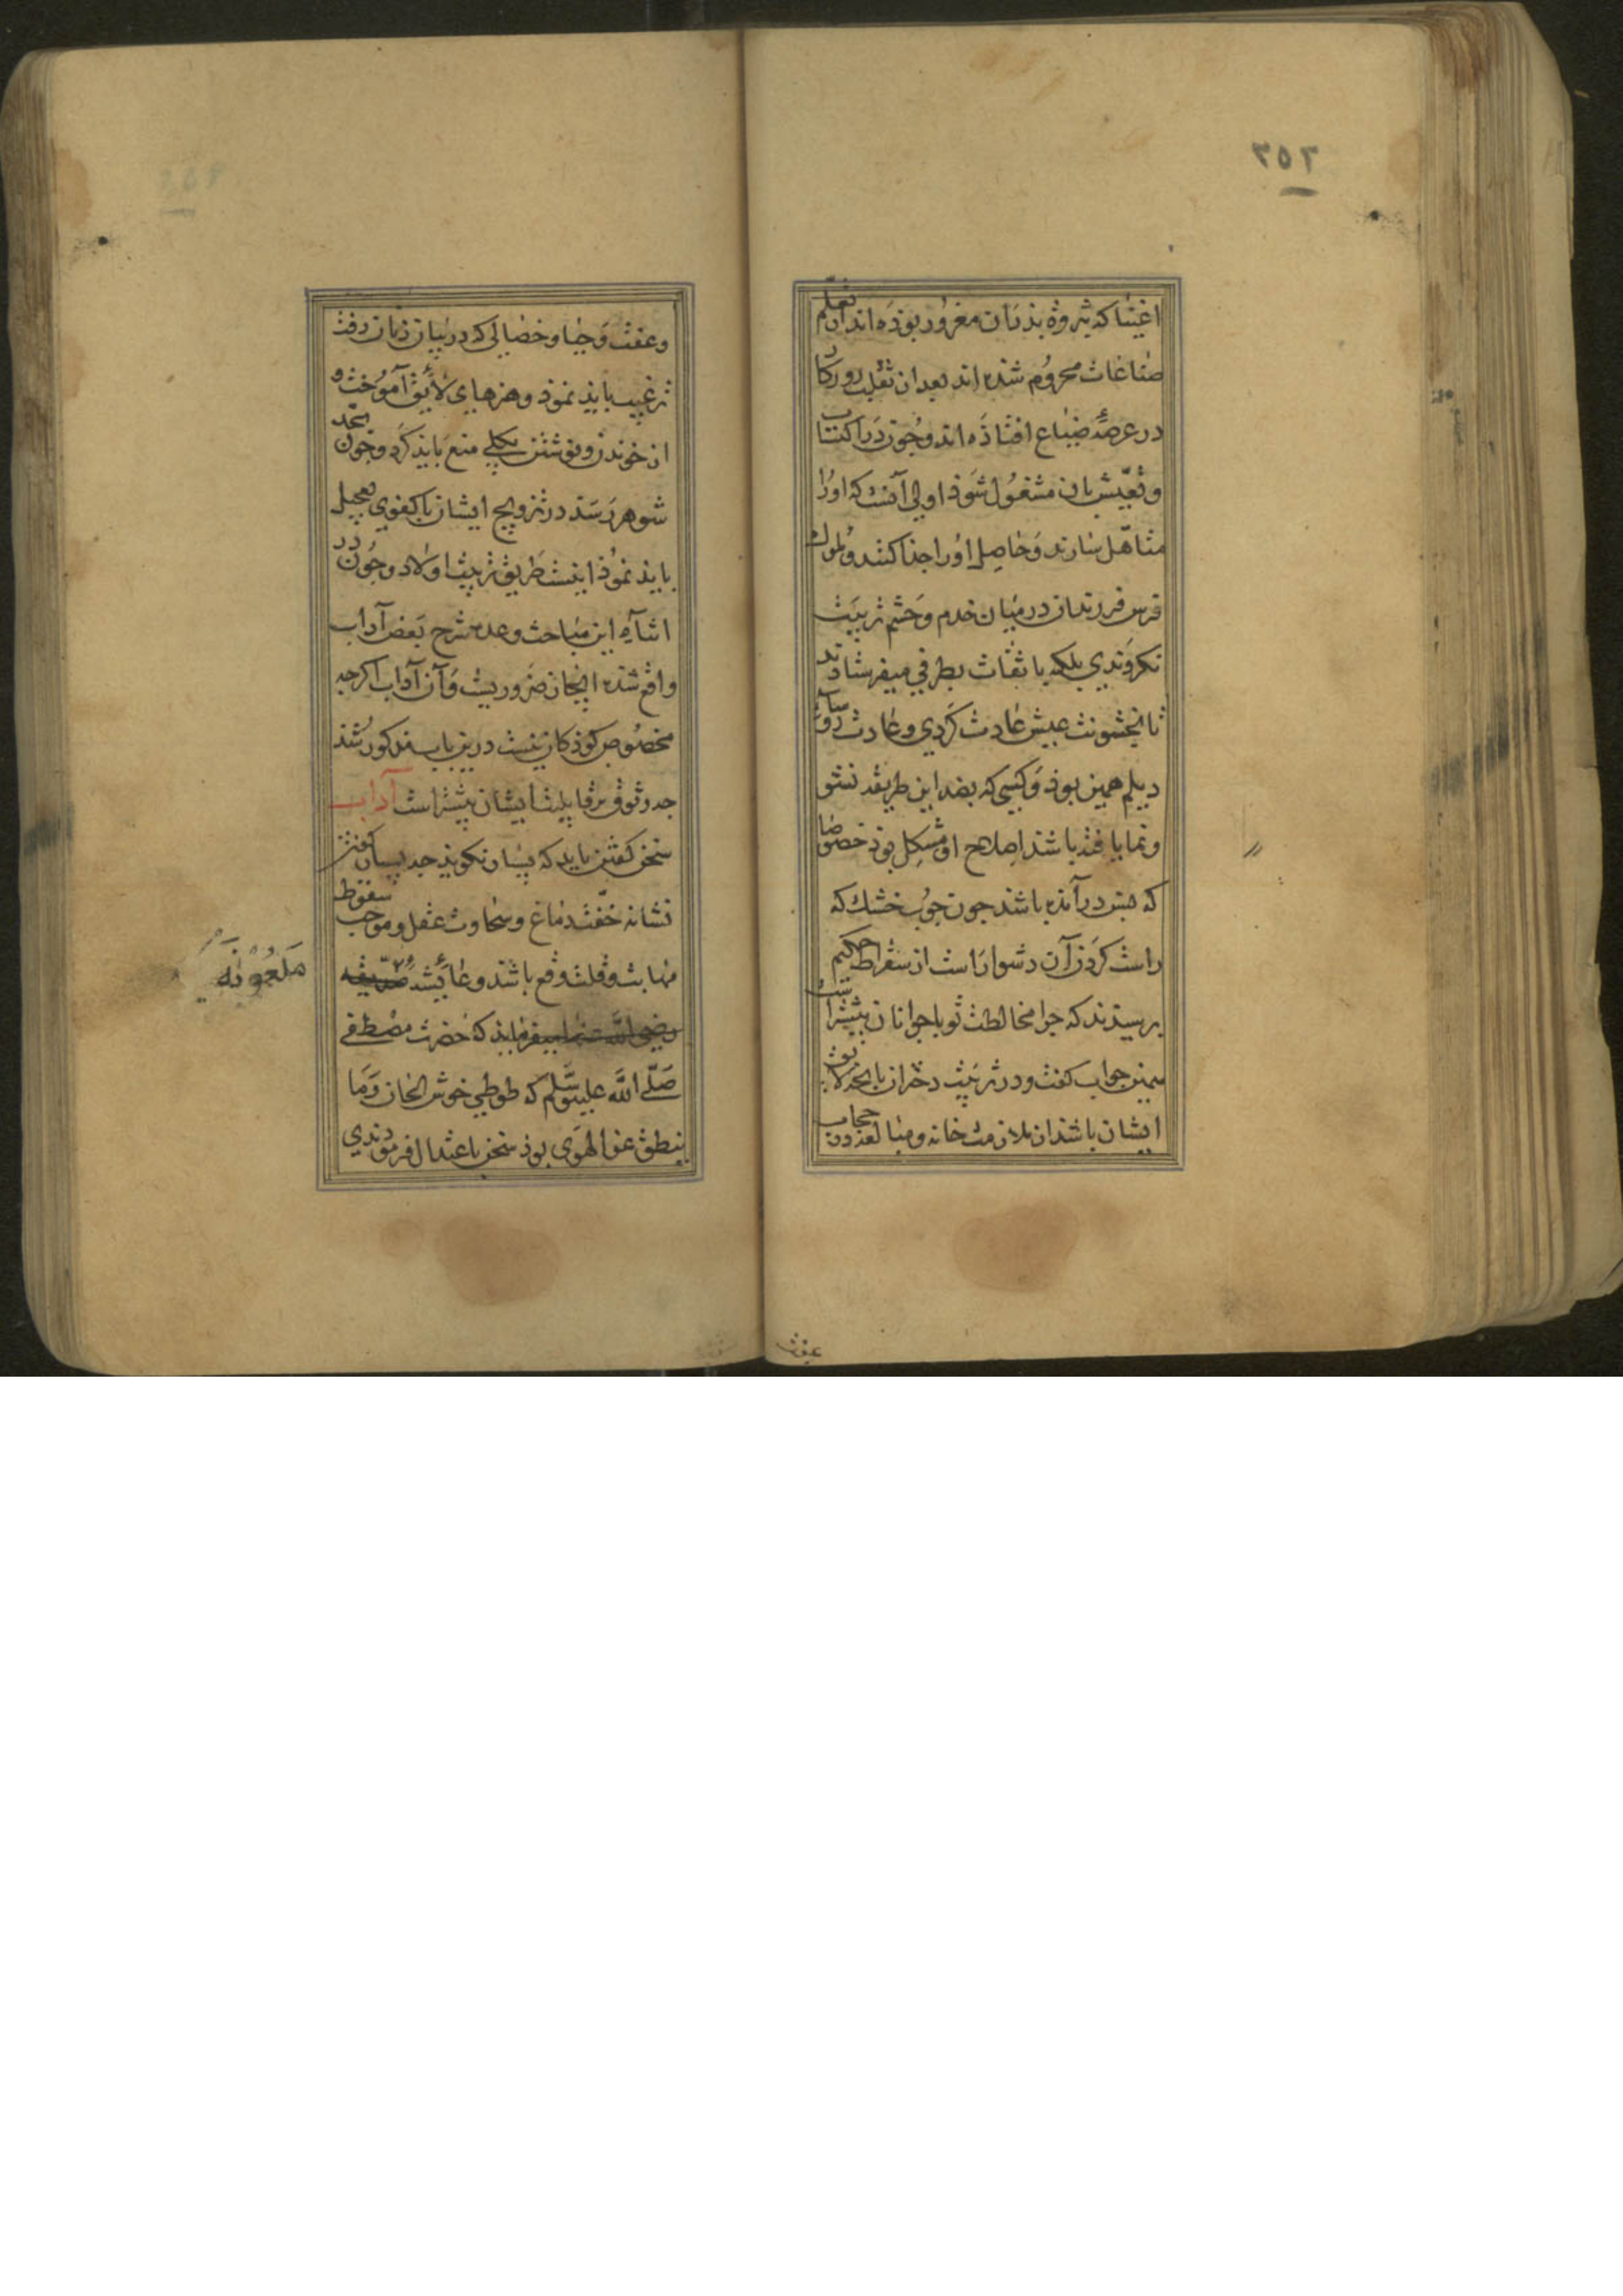 ٢٥٢
اغنیا که بثروة بذران مغرور بوذه اند از تعلّم
صناعات محروم شذه اند بعد از تقلب روزکار
در عرصهٔ ضیاع افتاذه اند وجون در اکتساب
وتعیّش بان مشغول شوذ اولی آنست که اورا
متاهّل سازند وحاصل اورا جذا کنند وملوك
فرس فرزندان در میان خدم وحشم تربیت
نکردندی بلکه با ثقات بطرفی میفرستادند
تا بخشونت عیش عادت کردی وعادت رؤساء
دیلم همین بوذ وکسی که بضد این طریقه نشو
ونما یافته باشد اصلاح او مشکل بوذ خصوصا
که مسن در آمده باشد جون جوب خشك که
راست کردن آن دشوار است از سقراط حکیم
برسیذند که جرا مخالطت تو با جوانان بیشتر است
همین جواب کفت ودر تربیت دختران بانجه لایق
ایشان باشد از ملازمت خانه ومبالغه در حجاب
عفت
وعفت وحیا وخصالی که در بیان زنان رفت
ترغیب بایذ نموذ وهنرهای لایق آموخت و
از خوندن ونوشتن بکلی منع بایذ کرد وجون بحد
شوهر رسذ در تزویج ایشان با کفوی تعجیل
بایذ نموذ اینست طریق تربیت اولاد وجون در
اثناء این مباحث وعده شرح بعض آداب
واقع شذه انجاز ضروریست وآن آداب اکرجه
مخصوص کوذکان نیست درین باب مذکور شذ
جه وثوق بر قابلیت ایشان بیشتر است آداب
سخن کفتن باید که بسیار نکویذ جه بسیار کفتن
نشانه خفّت دماغ وسخاوت عقل وموجب سقوط
مهابت وقلت وقع باشد وعائشهٔ صدّیقه
رضی الله عنها میفرمایذ که حضرت مصطفی
صلّی الله علیه وسلّم که طوطی خوش الحان وما
ینطق عن الهوی بوذ سخن باعتدال فرموذندی
ملعونه